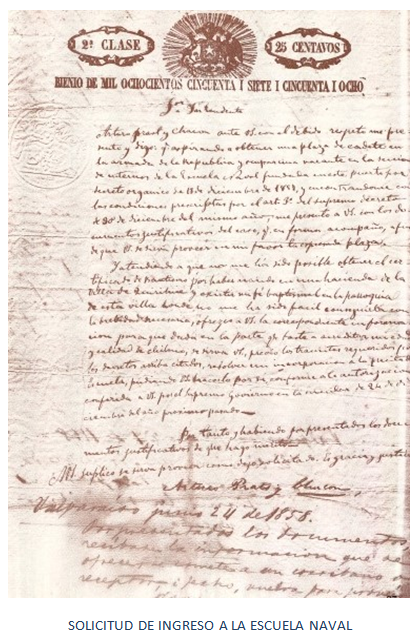 2ª CLASE
25 CENTAVOS
BIENIO DE MIL OCHOCIENTOS CINCUENTA I SIETE I CINCUENTA I OCHO
Sr. Intendente
Arturo Prat y Chacon ante VS. con el debido respeto me pre
sento y digo: que aspirando a obtener una plaza de cadete en
la armada de la República y vacante en la seccion
de internos de la Escuela Naval fundada en este puerto por
decreto organico de 18 de diciembre de 1857, y encontrandome con
las condiciones prescriptas por el art. 3º del supremo decreto
de 30 de diciembre del mismo año; me presento a VS. con los do
cumentos justificativos del caso, y en forma acompaño, a fin
de que VS. se sirva proveer en mi favor la espresada plaza.
Y atendiendo a que no me ha sido posible obtener el cer
tificado de bautismo por haber nacido en una hacienda de la
villa de Quirihue y existir mi fé bautismal en la parroquia
de esta villa donde no me ha sido facil conseguirla con
la brevedad necesaria, ofrezco a VS. la correspondiente informa
cion para que dada en la parte que baste a acreditar mi edad
y calidad de chileno, se sirva VS., previos los tramites requeridos por
los decretos arriba citados, resolver mi incorporacion a la precitada
Escuela, pudiendo VS. hacerlo por si conforme a la autorizacion
conferida a VS. por el Supremo Gobierno en la de 24 de di
ciembre del año proximo pasado.
Por tanto y habiendo por presentados los docu
mentos justificativos de que hago mérito
A VS. suplico se sirva proveer como dejo solicitado. Es gracia y justicia
Arturo Prat y Chacon
Valparaiso junio 24 de 1858.
Por presentados los documentos,
recibase la informacion que se
ofrece, ante un escribano o
receptor i fecho, vuelva para proveer
SOLICITUD DE INGRESO A LA ESCUELA NAVAL